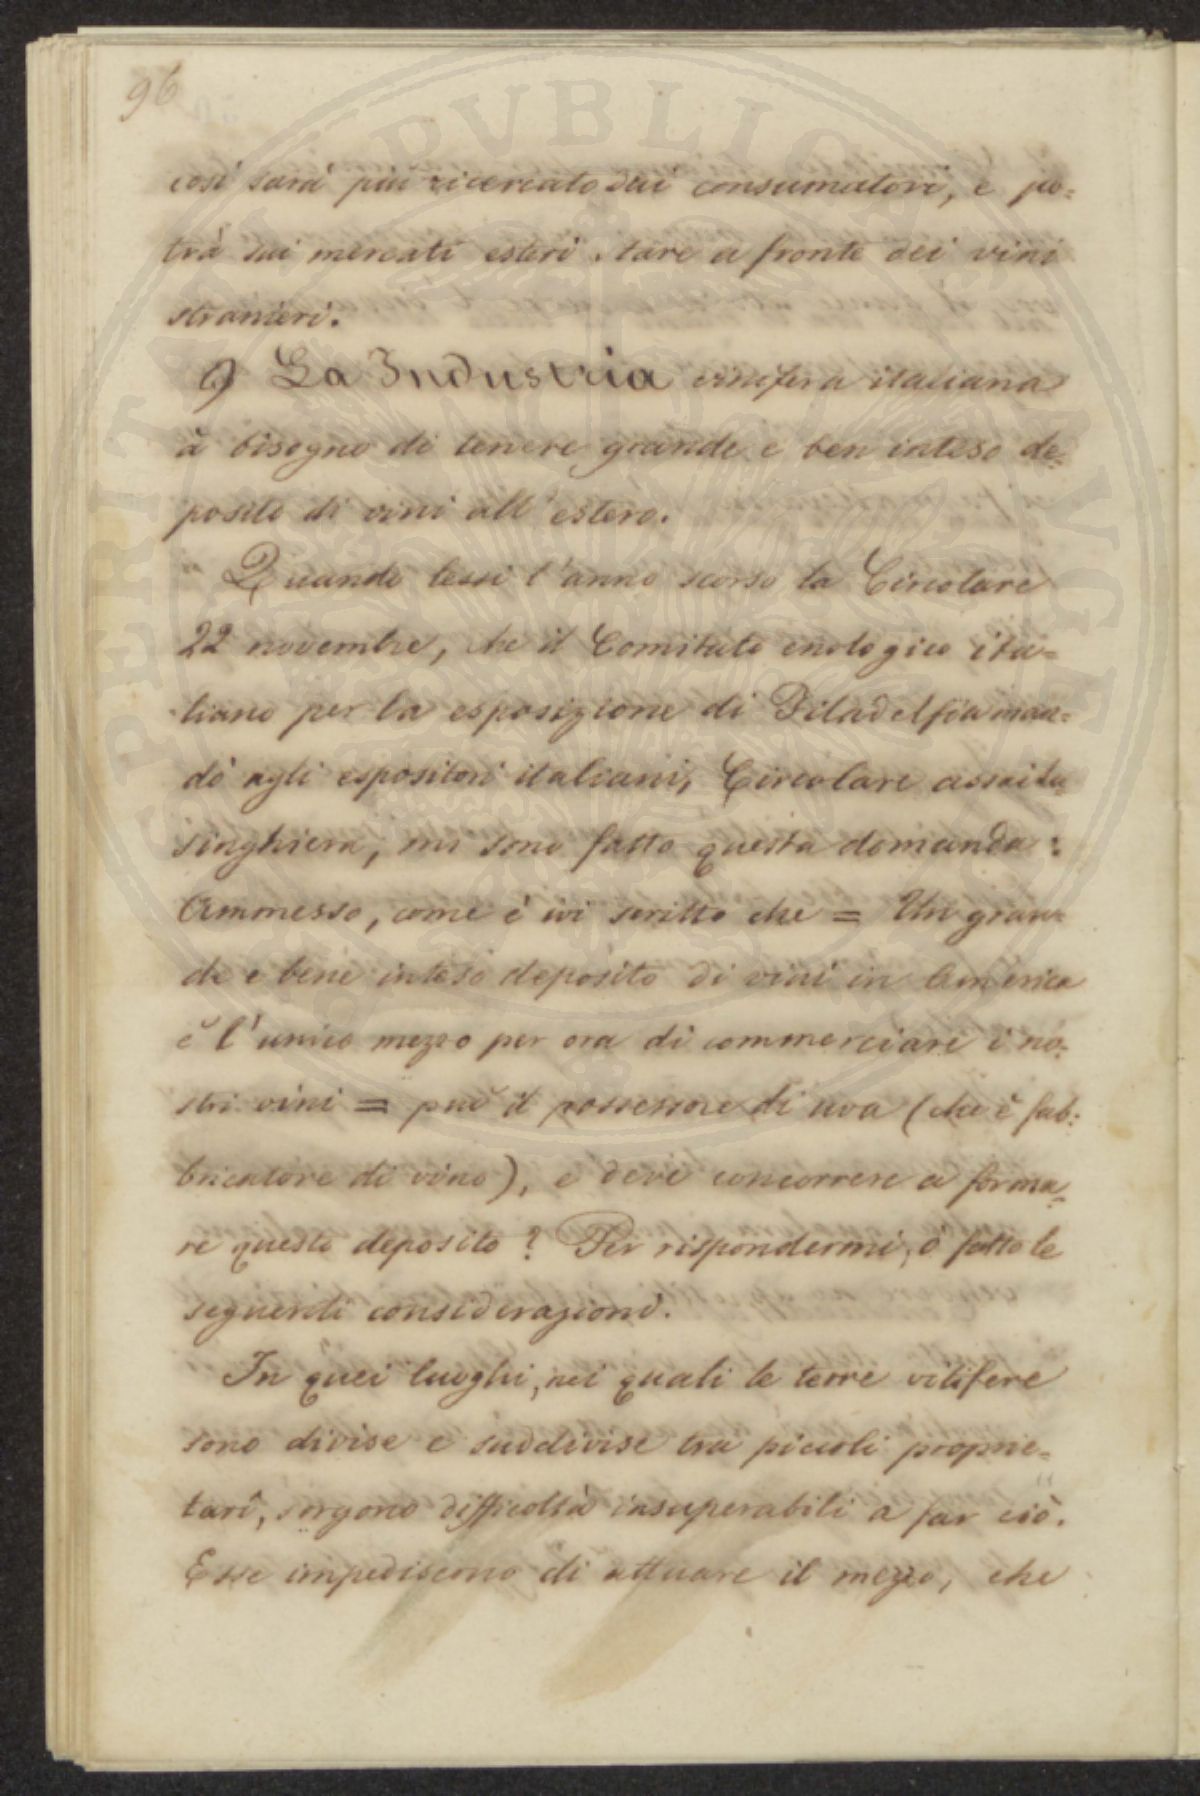 96
così sarà più ricercato dai consumatori, e po=
trà sui mercati esteri stare a fronte dei vini
stranieri.
9 La Industria vinifera italiana
à bisogno di tenere grande e ben inteso de=
posito di vini all'estero.
Quando lessi l'anno scorso la Circolare
22 novembre, che il Comitato enologico ita=
liano per la esposizione di Filadelfia man=
dò agli espositori italiani, Circolare assai lu
singhiera, mi sono fatto questa domanda:
Ammesso, come è ivi scritto che = Un gran=
de e bene inteso deposito di vini in America
è l'unico mezzo per ora di commerciare i no=
stri vini = può il possessore di uva (che è fab=
bricatore di vino), e deve concorrere a forma=
re questo deposito? Per rispondermi, ò fatto le
seguenti considerazioni.
In quei luoghi, nei quali le terre vitifere
sono divise e suddivise tra piccoli proprie=
tarî, sorgono difficoltà insuperabili a far ciò.
Esse impediscono di attuare il mezzo, che
SPERITATI PVBLICAE AVGE